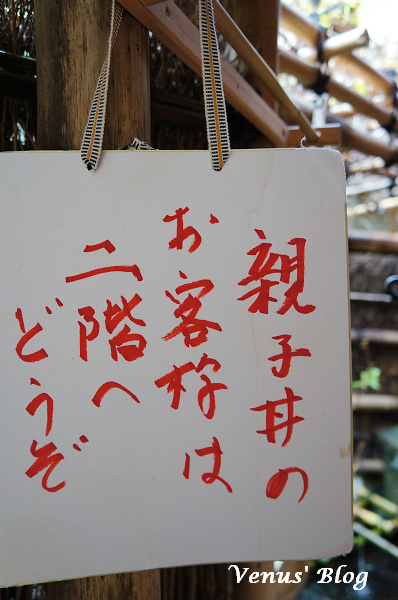 親子丼の
お客様は
二階へ
どうぞ
Venus' Blog